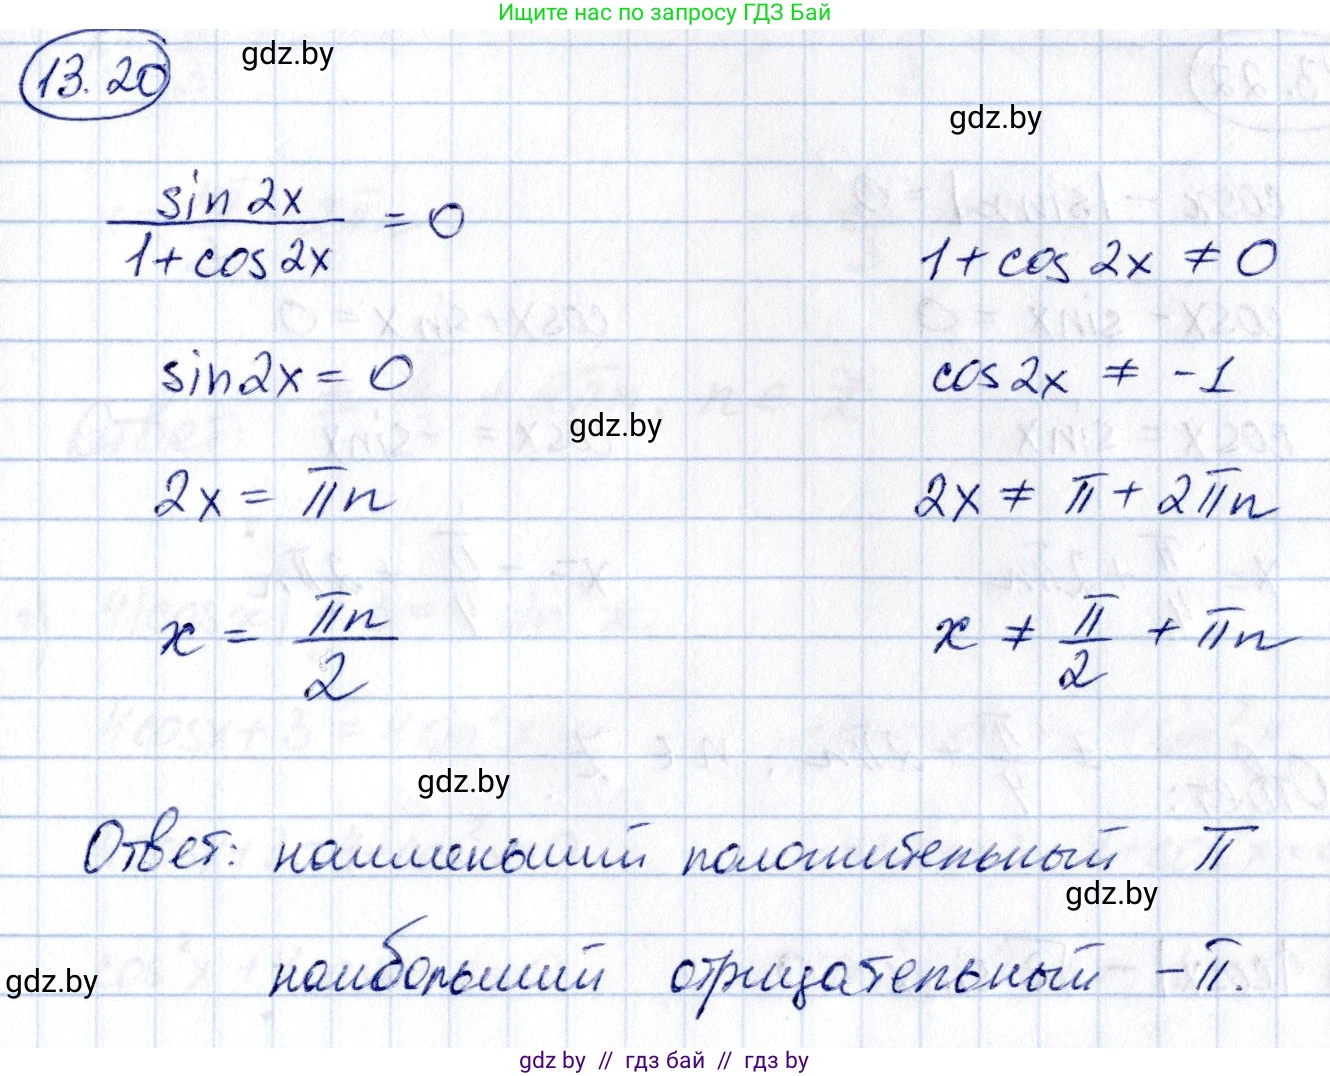 Ищите нас по запросу ГДЗ Бай
13.20
gdz.by
gdz.by
sin 2x / (1 + cos 2x) = 0
1 + cos 2x ≠ 0
sin 2x = 0
cos 2x ≠ -1
gdz.by
2x = πn
2x ≠ π + 2πn
x = πn / 2
x ≠ π / 2 + πn
gdz.by
Ответ: наименьший положительный π
gdz.by
наибольший отрицательный -π.
gdz.by
gdz by // гдз бай // гдз by